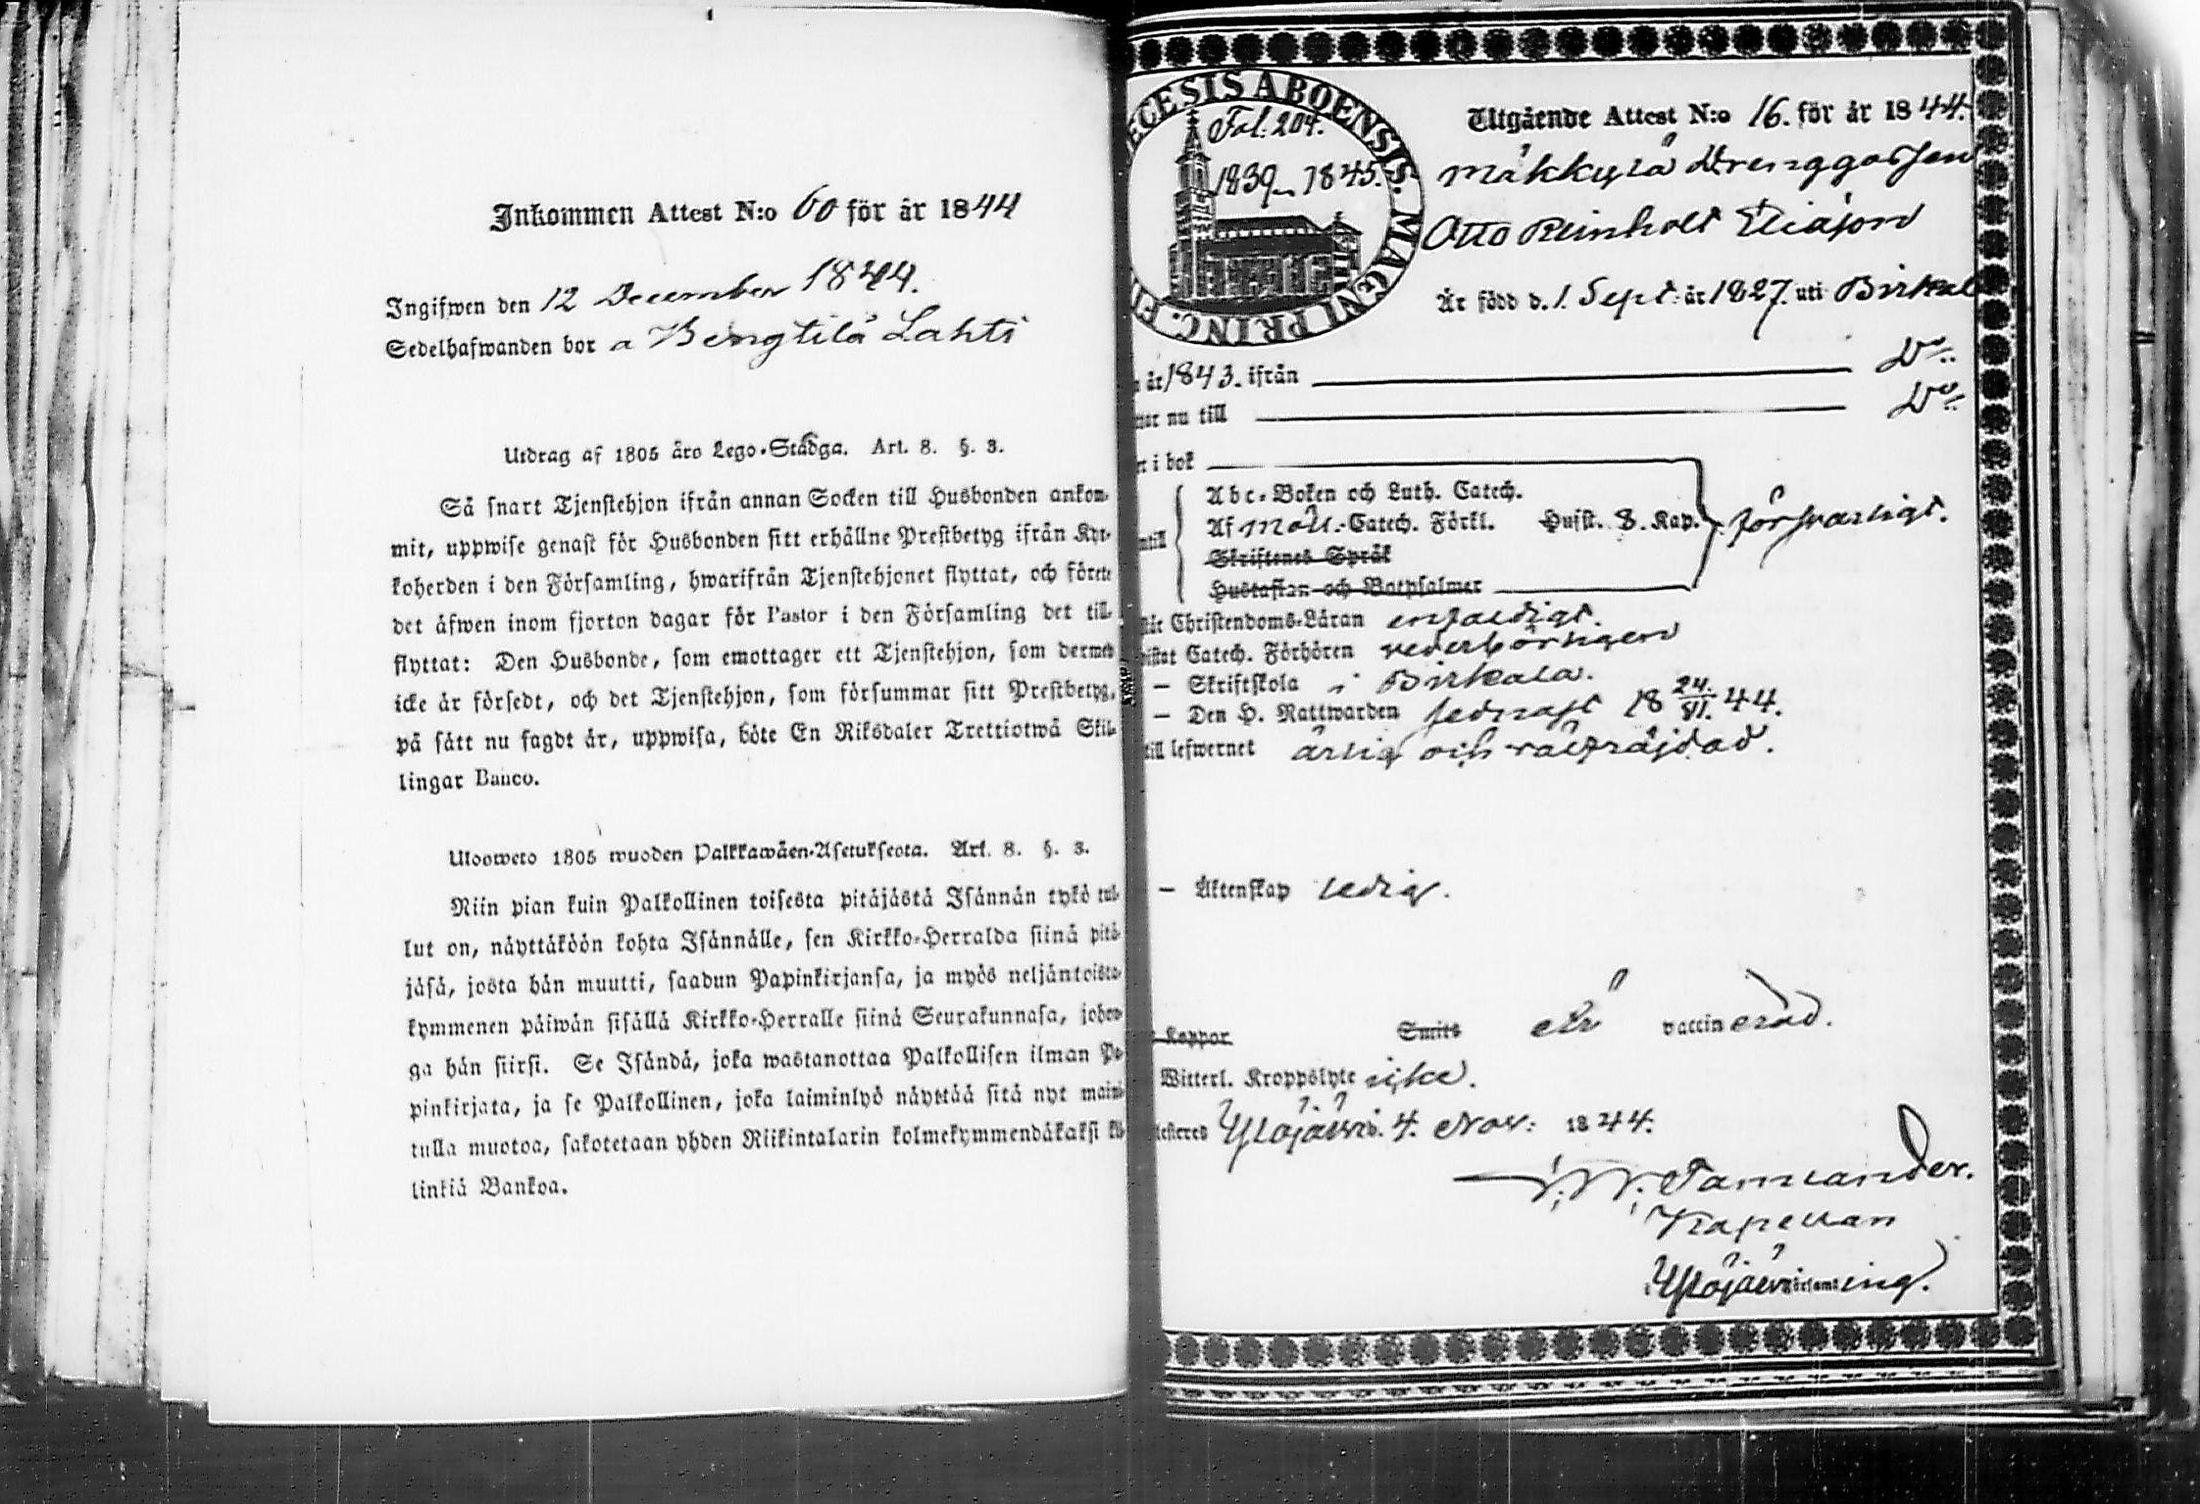 Inkommen Attest N:o 60 för år 1844
Ingifwen den 12 December 1844.
Sedelhafwanden bor a Bengtilä Lahti
Utdrag af 1805 års Lego-Stadga. Art. 8. §. 3.
Så snart Tjenstehjon ifrån annan Socken till Husbonden ankom-
mit, uppwise genast för Husbonden sitt erhållne Prestbetyg ifrån Kyr-
koherden i den Församling, hwarifrån Tjenstehjonet flyttat, och förete
det äfwen inom fjorton dagar för Pastor i den Församling det till-
flyttat: Den Husbonde, som emottager ett Tjenstehjon, som dermed
icke är försedt, och det Tjenstehjon, som försummar sitt Prestbetyg,
på sätt nu sagdt är, uppwisa, böte En Riksdaler Trettiotwå Skil-
lingar Banco.
Ulosweto 1805 wuoden Palkkawäen-Asetuksesta. Art. 8. §. 3.
Niin pian kuin Palkollinen toisesta pitäjästä Isännän tykö tul-
lut on, näyttäköön kohta Isännälle, sen Kirkko-Herralda siinä pitä-
jäsä, josta hän muutti, saadun Papinkirjansa, ja myös neljäntoista-
kymmenen päiwän sisällä Kirkko-Herralle siinä Seurakunnasa, johon-
ga hän siirsi. Se Isändä, joka wastanottaa Palkollisen ilman Pa-
pinkirjata, ja se Palkollinen, joka laiminlyö näyttää sitä nyt maini-
tulla muotoa, sakotetaan yhden Riikintalarin kolmekymmendäkaksi ki-
linkiä Bankoa.
ECESIS ABOENSIS. MAGNI PRINC. FI
Fol. 204.
1839–1845.
Utgående Attest N:o 16. för år 1844.
Mäkkylä Drenggossen
Otto Reinholt Eliasson
Är född d. 1. Sept. år 1827. uti Birkala
år 1843. ifrån D:o
nu till D:o
i bok
Abc-Boken och Luth. Catech.
Af Möll.-Catech. Förkl. Husst. 8. Kap. försvarligt.
Skriftenes Språk
Hustaflan och Botpsalmer
Christendoms-Läran enfaldigt.
Catech. Förhören vederbörligen
— Skriftskola i Birkala.
— Den H. Nattwarden sednast 18 24/VI. 44.
till lefwernet ärlig och välfräjdad.
— Äktenskap ledig.
Koppor Smits är vaccinerad.
Witterl. Kroppslyte icke.
Ylöjärvi. 4. Nov: 1844.
Tamlander.
Kapellan
i Ylöjärvi Församling.